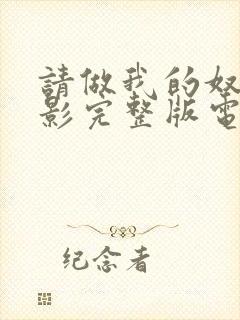 請做我的奴
影完整版電
纪念者